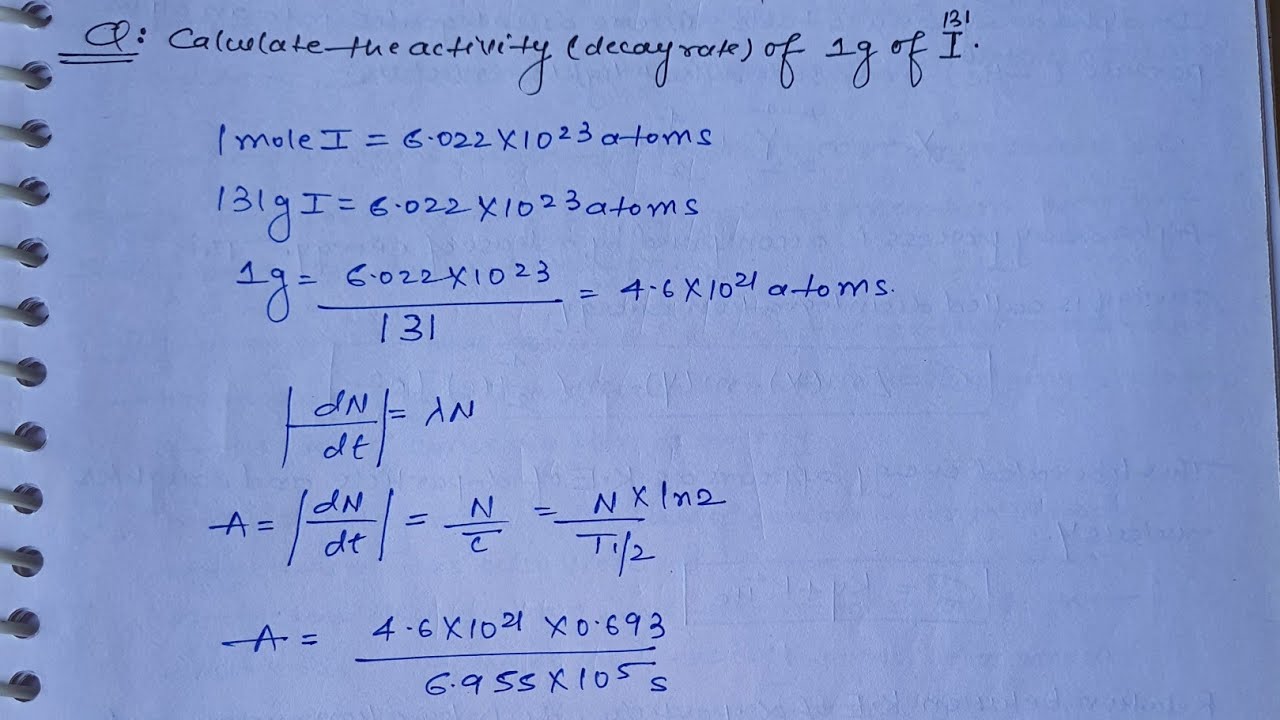 Q: Calculate the activity (decay rate) of 1g of ¹³¹I.
1 mole I = 6.022 X 10²³ atoms
131g I = 6.022 X 10²³ atoms
1g = 6.022 X 10²³ / 131 = 4.6 X 10²¹ atoms.
|dN/dt| = λN
A = |dN/dt| = N/τ = N X ln2 / T1/2
A = 4.6 X 10²¹ X 0.693 / 6.955 X 10⁵ s